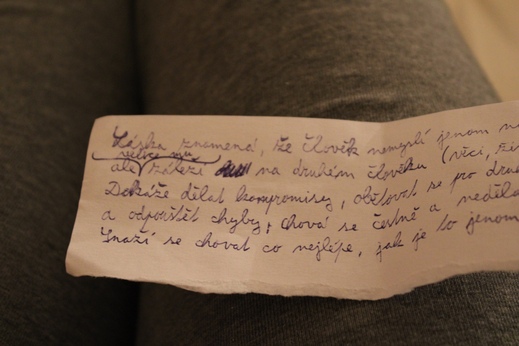 Láska znamená, že člověk nemyslí jenom na
velice mu
ale záleží na druhém člověku (věci, zví
Dokáže dělat kompromisy, obětovat se pro druh
a odpouštět chyby, chová se čestně a neděla
Snaží se chovat co nejlépe, jak je to jenom